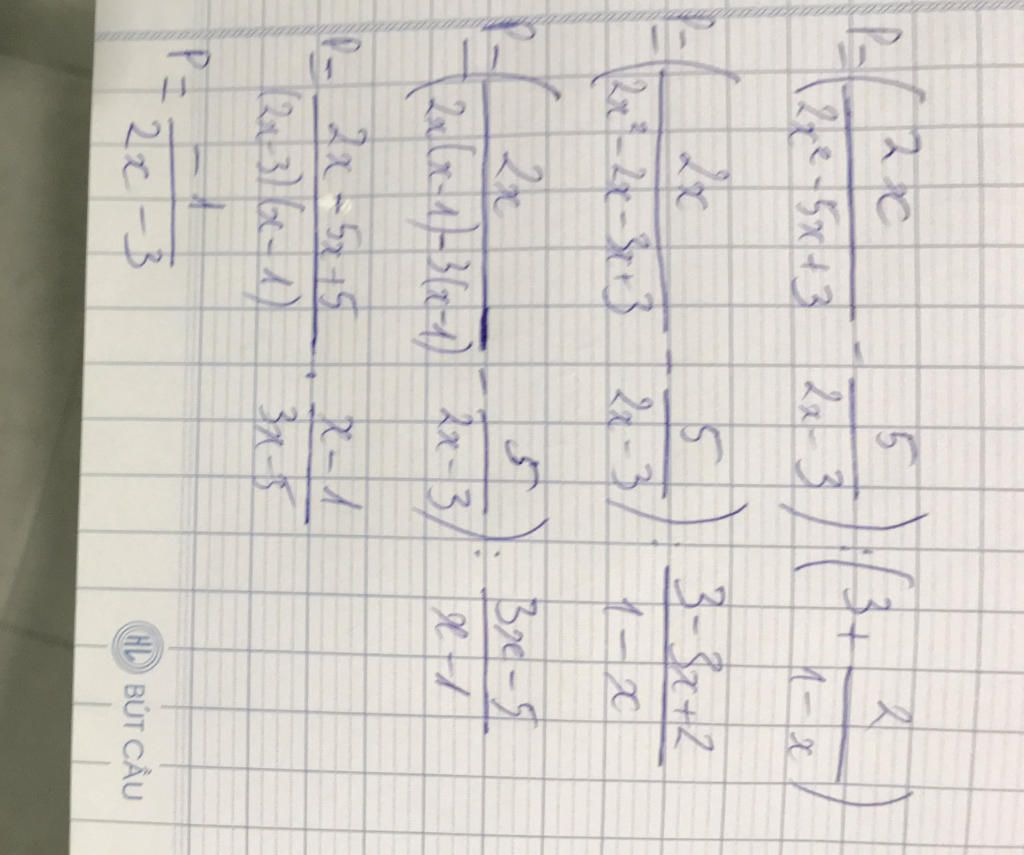 P = (2x / (2x² - 5x + 3) - 5 / (2x - 3)) : (3 + 2 / (1 - x))
P = (2x / (2x² - 2x - 3x + 3) - 5 / (2x - 3)) : (3 - 3x + 2) / (1 - x)
P = (2x / (2x(x - 1) - 3(x - 1)) - 5 / (2x - 3)) : (3x - 5) / (x - 1)
P = (2x - 5x + 5) / ((2x - 3)(x - 1)) . (x - 1) / (3x - 5)
P = -1 / (2x - 3)
HL BÚT CẦU